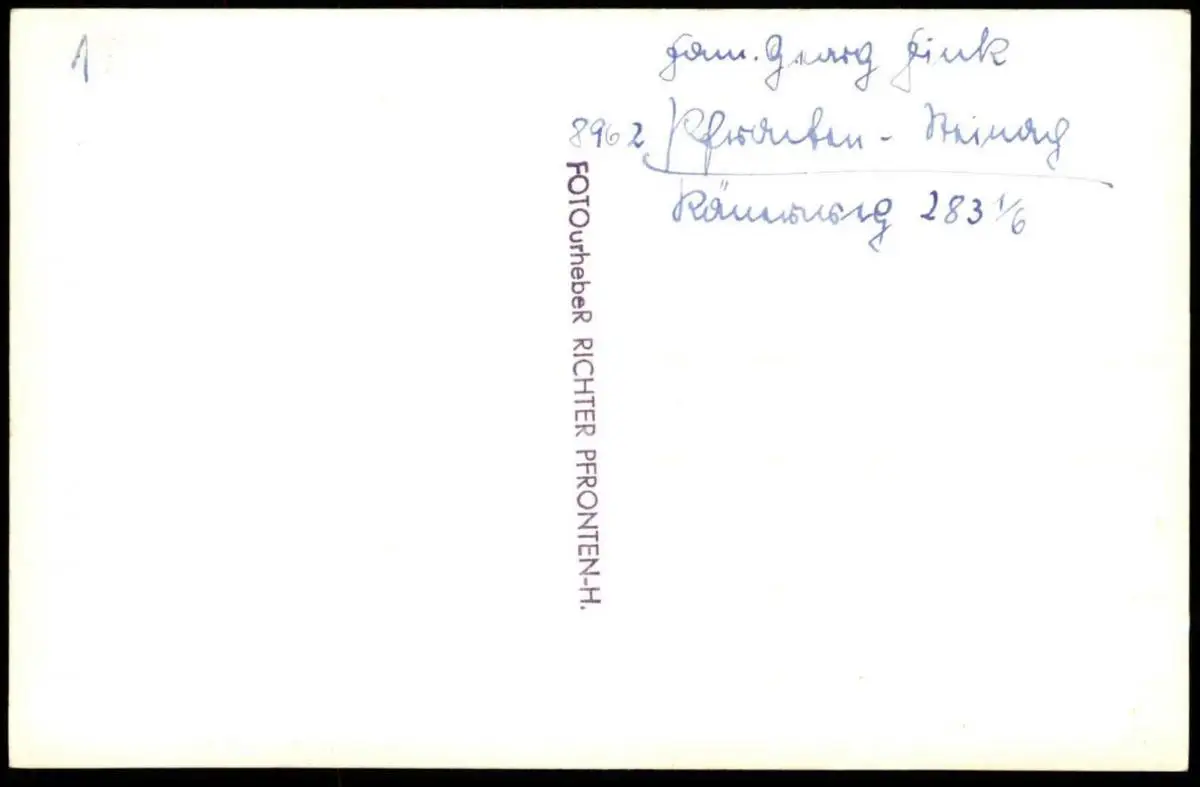 1
Fam. Georg Fink
8962 Pfronten - Steinach
283 1/6
FOTOurhebeR RICHTER PFRONTEN-H.